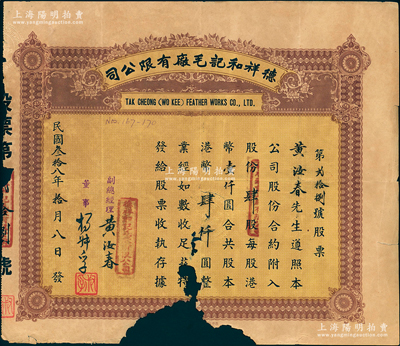 上海陽明拍賣
司公限有廠毛記和祥德
TAK CHEONG (WO KEE) FEATHER WORKS CO., LTD.
No. 167-170
第貳拾捌號股票
黃汝春先生遵照本
公司股份合約附入
股份肆股每股港
幣壹仟圓合共股本
港幣肆仟圓整
業經如數收足茲特
發給股票收執存據
副總經理 黃汝春
董事
民國叁拾八年拾月八日發
號
上海陽明拍賣